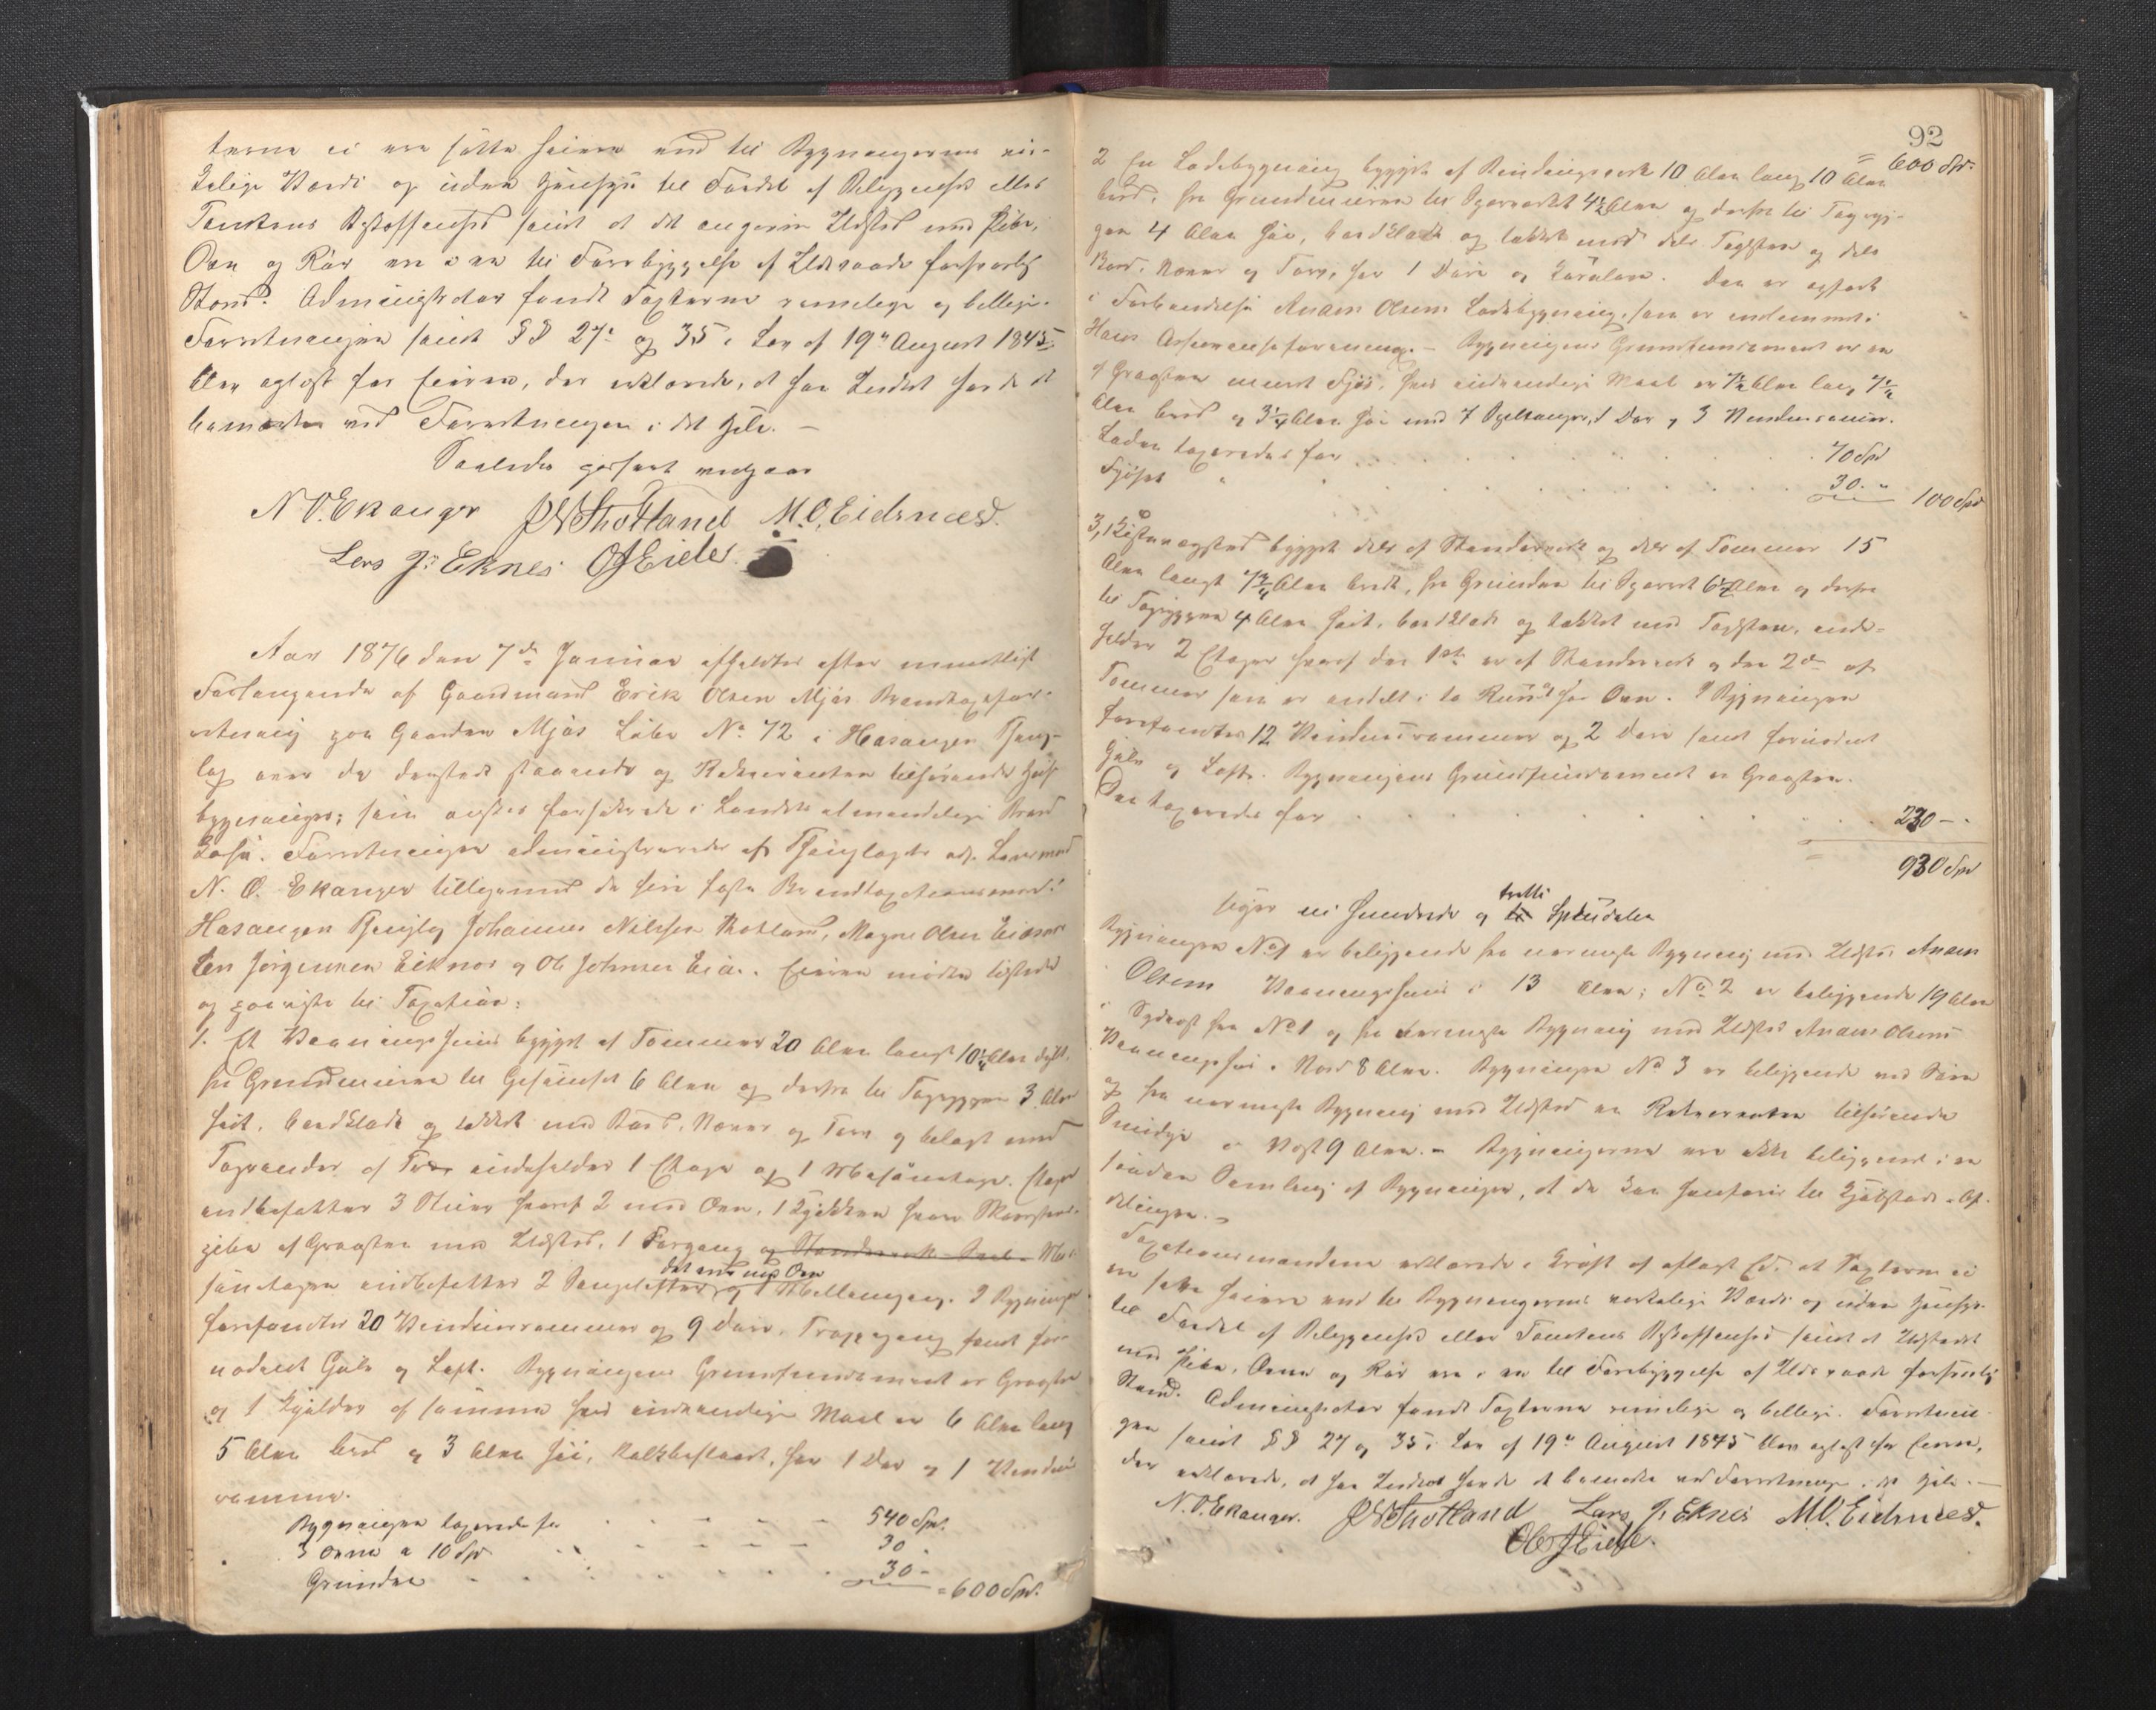 terne ei ere satte høiere end til Bygningernes vir-
kelige Værdi og uden Hensyn til Fordel af Beliggenhed eller
Tomtens Beskaffenhed samt at det angivne Ildsted med Pibe,
Ovn og Rør ere i en til Forebyggelse af Ildsvaade forsvarlig
Stand. Administrator fandt Taxterne rimelige og billige.
Forretningen samt §§ 27 og 35 i Lov af 19de August 1845
blev oplæst for Eieren, der erklærede, at han Intet havde at
bemærke ved Forretningen i det Hele. —
Saaledes passeret vedgaaes
N. O. Ekanger J N Thotland M. O. Eidsnæs.
Lars J. Eknes O J Eide.
Aar 1876 den 7de Januar afholdtes efter mundtligt
Forlangende af Gaardmand Erik Olsen Mjøs Brandtaxtfor-
retning paa Gaarden Mjøs Løbe No 72 i Hosanger Thing-
lag over de dersteds staaende og Rekvirenten tilhørende Huus-
bygninger, som ønskes forsikrede i Landets almindelige Brand
Kasse. Forretningen administreredes af Thinglagets Lensmand
N. O. Ekanger tilligemed de fire faste Brandtaxationsmænd i
Hosanger Thinglag Johannes Nilssen Thotland, Magne Olsen Eidsnæs
Lars Jørgensen Eiknes og Ole Johnsen Eide. Eieren mødte tilstede
og paaviste til Taxation:
1. Et Vaaningshuus bygget af Tømmer 20 Alen langt 10½ Alen dybt,
fra Grundmuren til Gesimset 6 Alen og derfra til Tagryggen 3 Alen
høit, bordklædt og tækket med Bord, Næver og Torv og belagt med
Tagrender af Træ indeholder 1 Etage og 1 Mesanetage. Etagen
indbefatter 3 Stuer hvoraf 2 med Ovn, 1 Kjøkken hvori Skorsteens-
pibe af Graasteen med Ildsted, 1 Forgang og Mes-
sanetagen indbefatter 2 Sengelofter, det ene med Ovn og 1 Mellemgang. I Bygningen
forefandtes 20 Vinduesrammer og 9 Døre, Trappegang samt for-
nødent Gulv og Loft. Bygningens Grundfundament er Graasteen
og 1 Kjælder af samme hvis indvendige Maal er 6 Alen lang
5 Alen bred og 3 Alen høi, kalkbeslaaet, har 1 Dør og 1 Vindues-
ramme.
Bygningen taxeredes for . . . . 540 Spd.
3 Ovne a 10 Spd . . . . 30 "
Grunden . . . . 30 "
= 600 Spd.
92
= 600 Spd.
2 En Ladebygning bygget af Bindingsverk 10 Alen lang 10 Alen
bred, fra Grundmuren til Sperredet 4½ Alen og derfra til Tagryg-
gen 4 Alen høi, bordklædt og tækket med dels Tagsteen og dels
Bord, Næver og Torv, har 1 Dør og Kørelaare. Den er opført
i Forbindelse Anders Olsens Ladebygning, som er indlemmet i
Hans Assuranceforening. — Bygningens Grundfundament er en
af Graasteen muret Fjøs, hvis indvendige Maal er 7½ Alen lang 7½
Alen bred og 3¼ Alen høi med 7 Spiltauger, 1 Dør og 3 Vinduesrammer.
Laden taxeredes for . . . . 70 Spd
Fjøset " . . . . 30 "
100 Spd
3, 1 bygget dels af Standerverk og dels af Tømmer 15
Alen langt 7¾ Alen bredt, fra Grunden til Sperret 6½ Alen og derfra
til Tagryggen 4 Alen høit, bordklædt og tækket med Tagsteen, inde-
holder 2 Etager hvoraf den 1ste er af Standerverk og den 2den af
Tømmer som er inddelt i to Rum og har Ovn. I Bygningen
forefandtes 12 Vinduesrammer og 2 Døre samt fornødent
Gulv og Loft. Bygningens Grundfundament er Graasteen.
Den taxeredes for . . . . 230 - .
930 Spd
siger ni Hundrede og tretti Speciedaler
Bygningen No 1 er beliggende fra nærmeste Bygning med Ildsted Anders
Olsens Vaaningshuus i 13 Alen; No 2 er beliggende 19 Alen
i Sydvest fra No 1 og fra nærmeste Bygning med Ildsted Anders Olsens
Vaaningshuus i Nord 8 Alen. Bygningen No 3 er beliggende ved Søen
og fra nærmeste Bygning med Ildsted en Rekvirenten tilhørende
Smidje i Vest 9 Alen. — Bygningerne ere ikke beliggende i en
saadan Samling af Bygninger, at de kan henføres til Kjøbstads-Af-
delingen. —
Taxationsmændene erklærede i Kraft af aflagt Ed, at Taxterne ei
ere satte høiere end til Bygningernes virkelige Værdi og uden Hensyn
til Fordel af Beliggenhed eller Tomtens Beskaffenhed samt at Ildstedet
med Pibe, Ovne og Rør ere i en til Forebyggelse af Ildsvaade forsvarlig
Stand. Administrator fandt Taxterne rimelige og billige. Forretnin-
gen samt §§ 27 og 35 i Lov af 19de August 1845 blev oplæst for Eieren,
der erklærede, at han Intet havde at bemærke ved Forretningen i det Hele. —
N. O. Ekanger. J N Thotland Lars J. Eknes M O. Eidsnæs.
Ole J Eide.